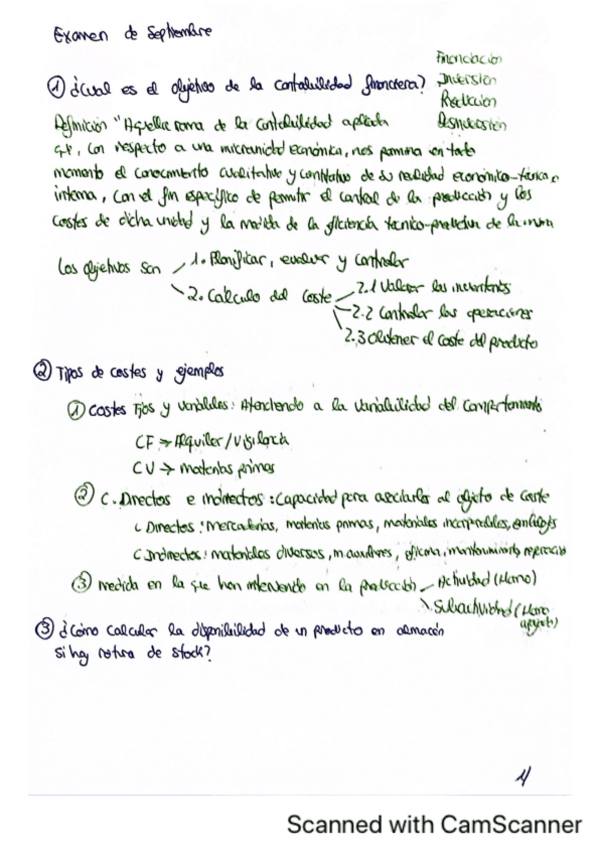 Examen de Septiembre
Financiación
① ¿Cual es el objetivo de la contabilidad financiera? Inversión
Producción
Definición "Aquella rama de la contabilidad aplicada
q.p, con respecto a una microunidad económica, nos permita en todo
momento el conocimiento cualitativo y cuantitativo de su realidad económico-técnica e
interna, con el fin específico de permitir el control de la producción y los
costes de dicha unidad y la medida de la eficiencia técnico-productiva de la misma
Los objetivos son 1. Planificar, evaluar y controlar
2. Calculo del Coste 2.1 Valorar los inventarios
2.2 Controlar las operaciones
2.3 Obtener el coste del producto
② Tipos de costes y ejemplos
① Costes Fijos y variables: Atendiendo a la variabilidad del comportamiento
CF → Alquiler/Vigilancia
CV → materias primas
② C. Directos e indirectos: Capacidad para asociarlos al objeto de coste
C Directos: mercaderías, materias primas, materiales incorporables, embalajes
C Indirectos: materiales diversos, m auxiliares, oficina, mantenimiento
③ medida en la que han intervenido en la producción Actividad (Humo)
Subactividad
③ ¿Cómo calcular la disponibilidad de un producto en almacén
si hay rotura de stock?
Scanned with CamScanner